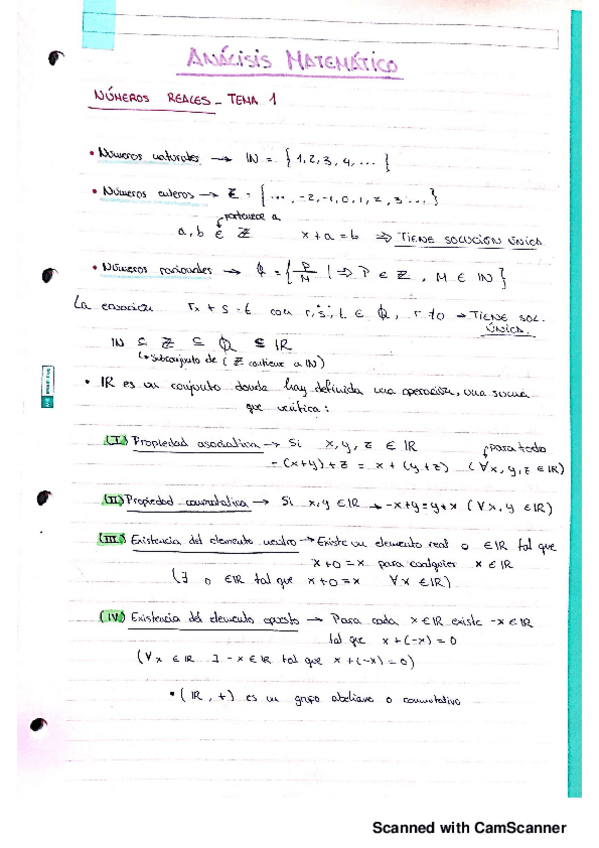 ANÁLISIS MATEMÁTICO
NÚMEROS REALES - TEMA 1
• Números naturales → IN = {1, 2, 3, 4, ...}
• Números enteros → Z = {..., -2, -1, 0, 1, 2, 3 ...}
pertenece a
a, b ∈ Z x + a = b ⇒ TIENE SOLUCIÓN ÚNICA
• Números racionales → Q = {P/M | ⇒ P ∈ Z, M ∈ IN}
La ecuación rx + s = t con r, s, t ∈ Q, r ≠ 0 → TIENE SOL.
ÚNICA.
IN ⊆ Z ⊆ Q ⊆ IR
(↳ subconjunto de (Z contiene a IN)
• IR es un conjunto donde hay definida una operación, una suma
que verifica:
(I) Propiedad asociativa → Si x, y, z ∈ IR
para todo
- (x+y)+z = x + (y+z) (∀x, y, z ∈ IR)
(II) Propiedad conmutativa → Si x, y ∈ IR → -x+y = y+x (∀x, y ∈ IR)
(III) Existencia del elemento neutro → Existe un elemento real 0 ∈ IR tal que
x+0 = x para cualquier x ∈ IR
(∃ 0 ∈ IR tal que x+0 = x ∀x ∈ IR)
(IV) Existencia del elemento opuesto → Para cada x ∈ IR existe -x ∈ IR
tal que x + (-x) = 0
(∀x ∈ IR ∃ -x ∈ IR tal que x + (-x) = 0)
• (IR, +) es un grupo abeliano o conmutativo
Scanned with CamScanner